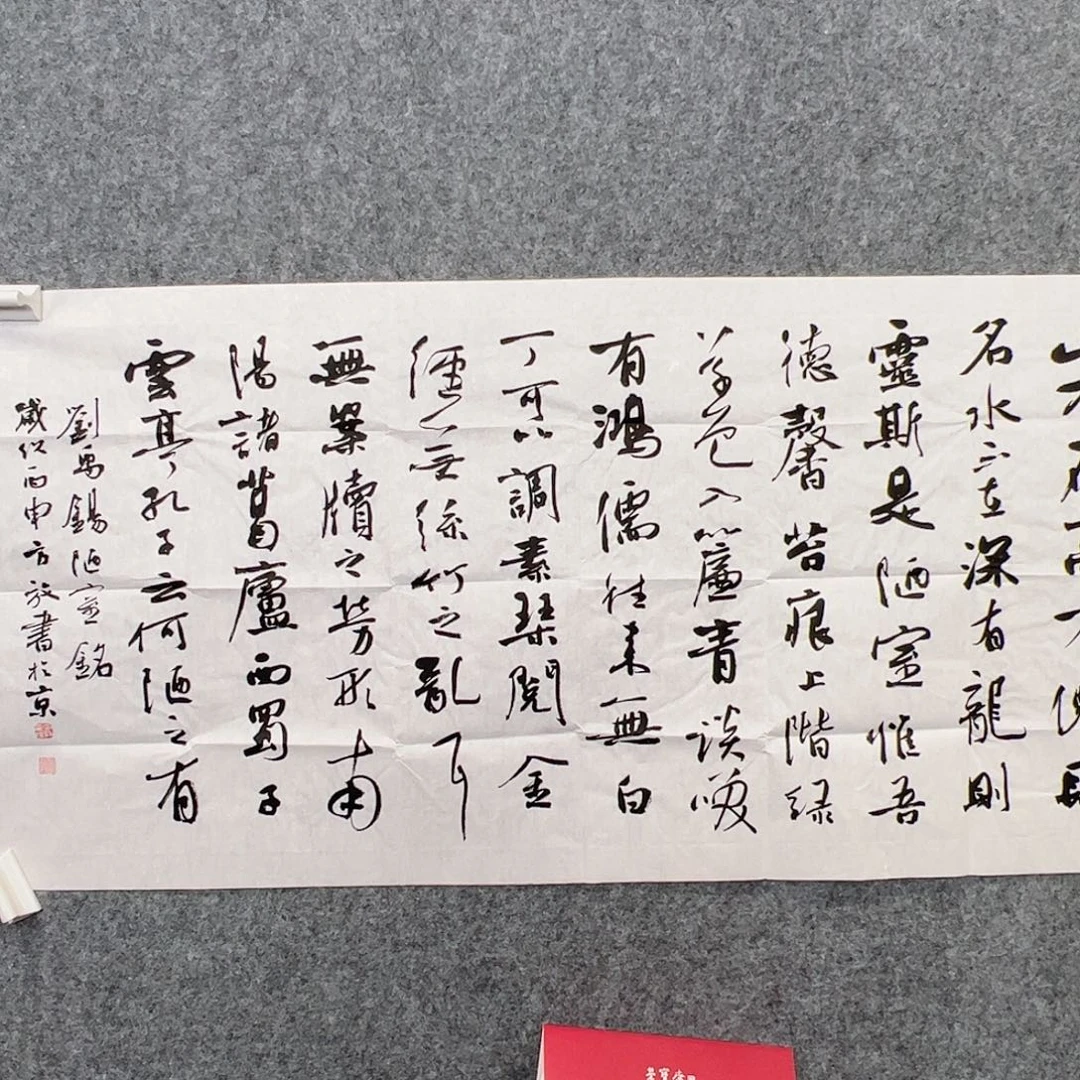 名水不在深有龍則
靈斯是陋室惟吾
德馨苔痕上階緑
草色入簾青談咲
有鴻儒往來無白
丁可以調素琴閲金
經無絲竹之亂耳
無案牘之勞形南
陽諸葛廬西蜀子
雲亭孔子云何陋之有
劉禹錫陋室銘
歲次丙申方放書於京